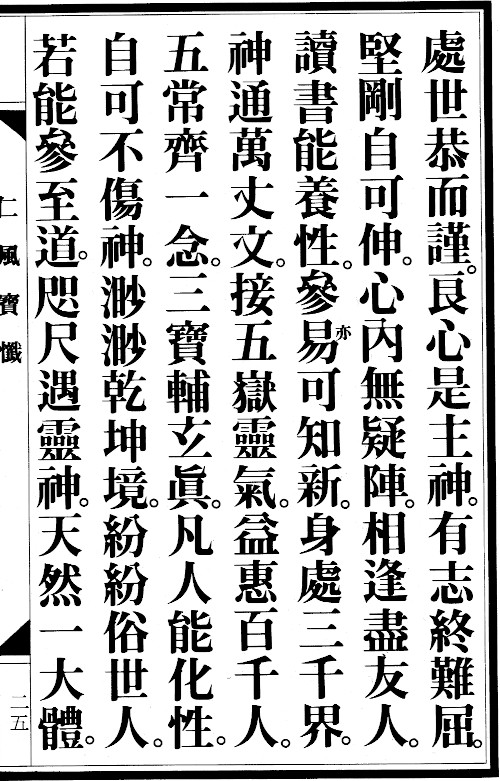 處世恭而謹。良心是主神。有志終難屈。
堅剛自可伸。心內無疑陣。相逢盡友人。
讀書能養性。參易亦可知新。身處三千界。
神通萬丈文。接五嶽靈氣。益惠百千人。
五常齊一念。三寶輔玄眞。凡人能化性。
自可不傷神。渺渺乾坤境。紛紛俗世人。
若能參至道。咫尺遇靈神。天然一大體。
仁風寶懺
二五